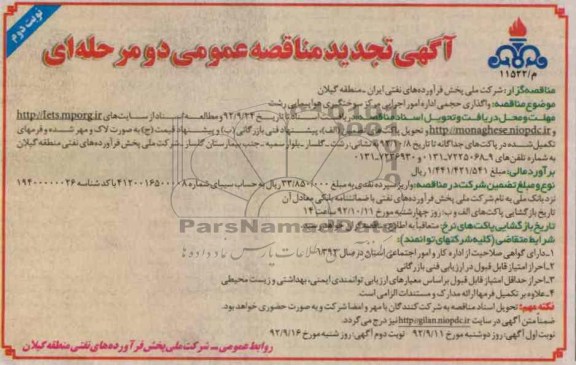 نوبت دوم
آگهی تجدید مناقصه عمومی دو مرحله‌ای
م/۱۱۵۲۲
مناقصه‌گزار: شرکت ملی پخش فرآورده‌های نفتی ایران ـ منطقه گیلان
موضوع مناقصه: واگذاری حجمی اداره امور اجرایی مرکز سوختگیری هواپیمایی رشت
مهلت و محل دریافت و تحویل اسناد مناقصه: دریافت اسناد تا تاریخ ۹۲/۹/۲۴ و مطالعه اسناد از سایت‌های http://Iets.mporg.ir
http://monaghese.niopdc.ir و تحویل پاکت‌های الف)، پیشنهاد فنی بازرگانی (ب) و پیشنهاد قیمت (ج) به صورت لاک و مهر شده و فرمهای
تکمیل‌شده در پاکت‌های جداگانه تا تاریخ به نشانی: رشت ـ گلسار ـ بلوار سمیه ـ جنب بیمارستان گلسار ـ شرکت ملی پخش
به شماره تلفن‌های ۹-۷۲۲۵۰۶۸-۰۱۳۱ و ۷۲۲۶۹۳۰-۰۱۳۱
برآورد مالی: مبلغ ۱/۴۴۱/۴۲۱/۵۴۱ ریال
نوع و مبلغ تضمین شرکت در مناقصه: واریز سپرده نقدی به مبلغ ۳۳/۸۵۰/۰۰۰ ریال به حساب سیبای شماره با کد شناسه
نزد بانک ملی به نام شرکت ملی پخش فرآورده‌های نفتی یا ضمانتنامه بانکی معادل آن
تاریخ بازگشایی پاکت‌های الف و ب: روز چهارشنبه مورخ ۹۲/۱۰/۱۱ ساعت ۱۴
تاریخ بازگشایی پاکت‌های نرخ: متعاقباً به اطلاع
ParsNamadData
شرایط متقاضی (کلیه شرکتهای توانمند):
۱ـ دارای گواهی صلاحیت از اداره کار و امور اجتماعی استان در سال ۱۳۹۲
۲ـ احراز امتیاز قابل قبول در ارزیابی فنی بازرگانی
۳ـ احراز حداقل امتیاز قابل قبول براساس معیارهای ارزیابی توانمندی ایمنی، بهداشتی و زیست محیطی
۴ـ علاوه بر تکمیل فرمها ارائه مدارک و مستندات الزامی است.
نکته مهم: تحویل اسناد مناقصه به شرکت‌کنندگان با مهر و امضا شرکت و به صورت حضوری خواهد بود.
ضمناً متن آگهی در سایت http://gilan.niopdc.ir نیز درج می‌گردد.
نوبت اول آگهی: روز دوشنبه مورخ ۹۲/۹/۱۱ نوبت دوم آگهی: روز شنبه مورخ ۹۲/۹/۱۶
روابط عمومی ـ شرکت ملی پخش فرآورده‌های نفتی منطقه گیلان